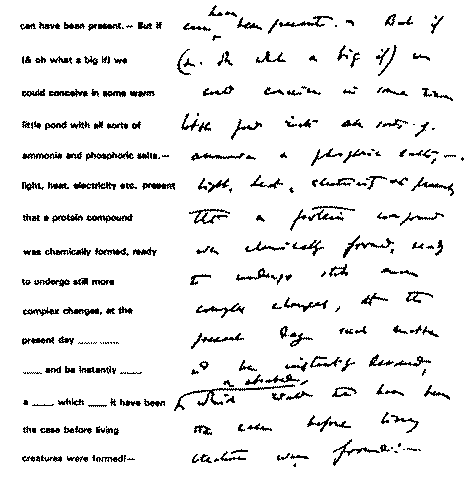 can have been present.— But if
(& oh what a big if) we
could conceive in some warm
little pond with all sorts of
ammonia and phosphoric salts.—
light, heat, electricity etc. present
that a protein compound
was chemically formed, ready
to undergo still more
complex changes, at the
present day ____ ____
____ and be instantly ____
a ____ which ____ it have been
the case before living
creatures were formed!—
have
been present. — But if
(& oh what a big if) we
could conceive in some warm
little pond with all sorts of
ammonia & phosphoric salts,—
light, heat, electricity &c present
that a protein compound
was chemically formed, ready
to undergo still more
complex changes, at the
present day such matter
wd be instantly devoured,
or absorbed,
which would not have been
the case before living
creatures were formed.—